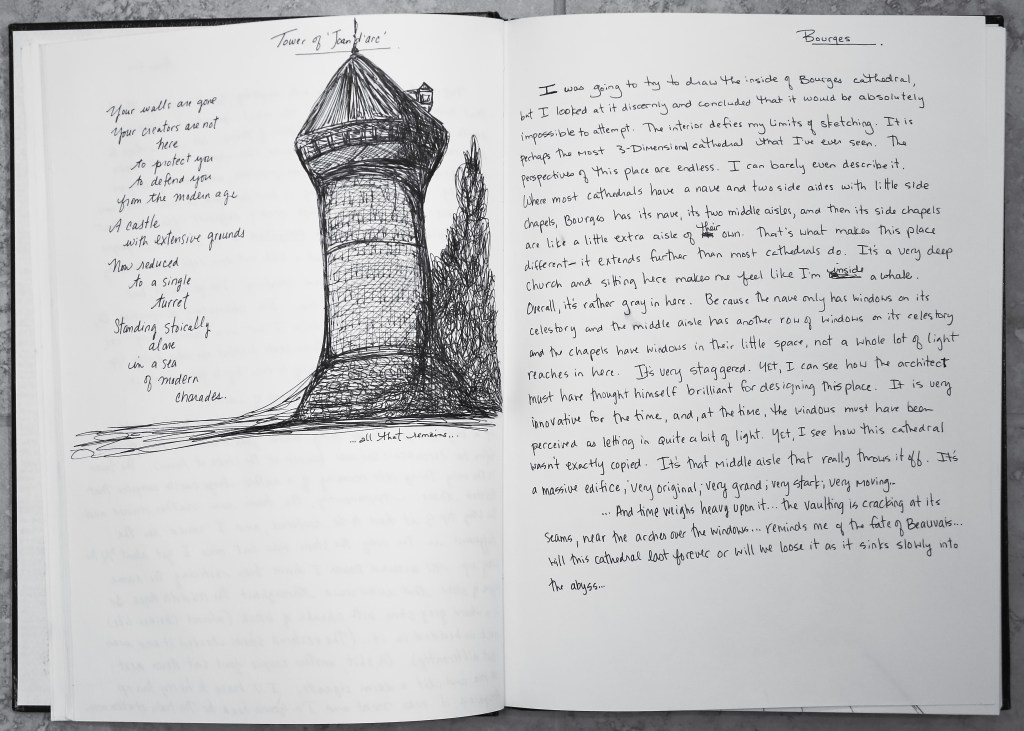 Tower of 'Joan d'arc'
Your walls are gone
Your creators are not
here
to protect you
to defend you
from the modern age
A castle
with extensive grounds
Now reduced
to a single
turret
Standing stoically
alone
in a sea
of modern
charades.
...all that remains...
Bourges
I was going to try to draw the inside of Bourges cathedral,
but I looked at it discernly and concluded that it would be absolutely
impossible to attempt. The interior defies my limits of sketching. It is
perhaps the most 3-Dimensional cathedral that I've ever seen. The
perspectives of this place are endless. I can barely even describe it.
Where most cathedrals have a nave and two side aisles with little side
chapels, Bourges has its nave, its two middle aisles, and then its side chapels
are like a little extra aisle of their own. That's what makes this place
different - it extends further than most cathedrals do. It's a very deep
church and sitting here makes me feel like I'm inside a whale.
Overall, it's rather gray in here. Because the nave only has windows on its
celestory and the middle aisle has another row of windows on its celestory
and the chapels have windows in their little space, not a whole lot of light
reaches in here. It's very staggered. Yet, I can see how the architect
must have thought himself brilliant for designing this place. It is very
innovative for the time, and, at the time, the windows must have been
perceived as letting in quite a bit of light. Yet, I see how this cathedral
wasn't exactly copied. It's that middle aisle that really throws it off. It's
a massive edifice; very original; very grand; very stark; very moving..
... And time weighs heavy upon it... the vaulting is cracking at its
seams, near the arches over the windows... reminds me of the fate of Beauvais...
will this cathedral last forever or will we loose it as it sinks slowly into
the abyss...